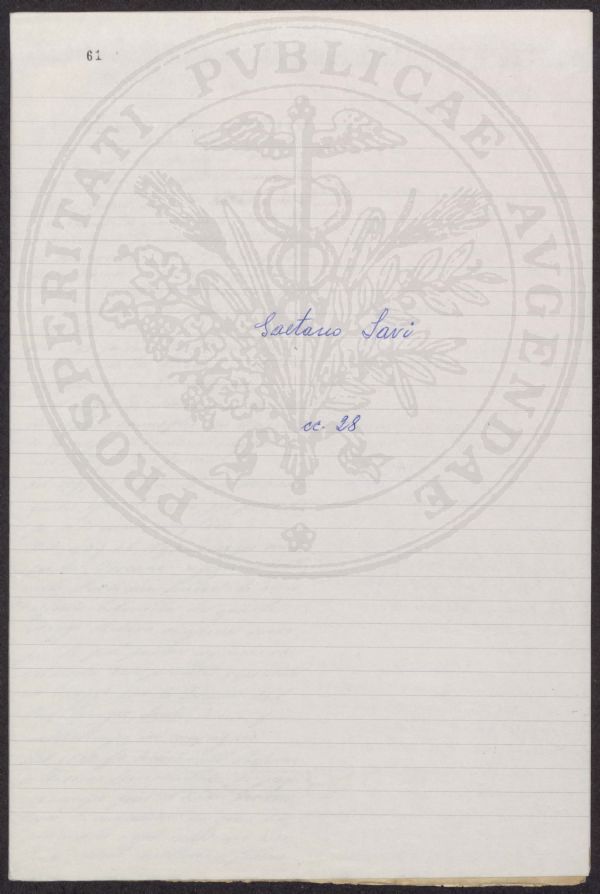 61
PROSPERITATI PVBLICAE AVGENDAE
Gaetano Savi
cc. 28